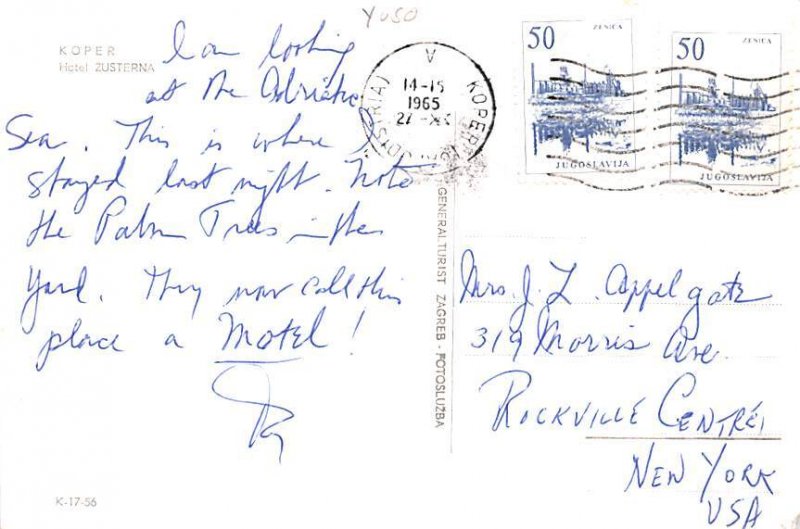 YU50
KOPER
Hotel ŽUSTERNA
I am looking
at the Adriatic
Sea. This is where I
stayed last night. Note
the Palm Trees in the
Yard. They now call this
place a Motel!
K-17-56
GENERALTURIST ZAGREB - FOTOSLUŽBA
KOPER
V
14-15
1965
50
ZENICA
JUGOSLAVIJA
50
ZENICA
JUGOSLAVIJA
Mrs. J. L. Appelgate
319 Morris Ave.
ROCKVILLE CENTRE,
NEW YORK
USA